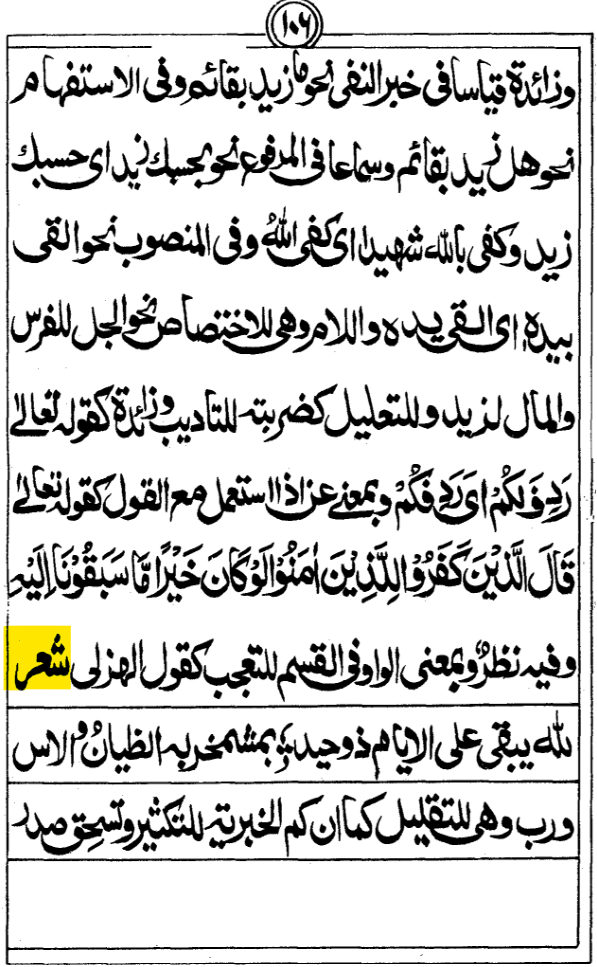 ١٠٦
وزائدة قياسا فى خبر النفى نحو ما زيد بقائم وفى الاستفهام
نحو هل زيد بقائم وسماعا فى المرفوع نحو بحسبك زيد اى حسبك
زيد وكفى بالله شهيدا اى كفى اللهُ وفى المنصوب نحو القى
بيده اى القى يده واللام وهى للاختصاص نحو الجل للفرس
والمال لزيد وللتعليل كضربته للتاديب وزائدة كقوله تعالىٰ
رَدِفَ لَكُمْ اى رَدِفَكُمْ وبمعنى عن اذا استعمل مع القول كقوله تعالىٰ
قَالَ الَّذِيْنَ كَفَرُوْا لِلَّذِيْنَ اٰمَنُوْا لَوْ كَانَ خَيْرًا مَّا سَبَقُوْنَا اِلَيْهِ
وفيه نظرٌ وبمعنى الواو فى القسم للتعجب كقول الهزلى شعر
لله يبقى على الايام ذو حيدٍ بمشمخر به الظيانُ والاس
ورب وهى للتقليل كما ان كم الخبرية للتكثير وتستحق صدر